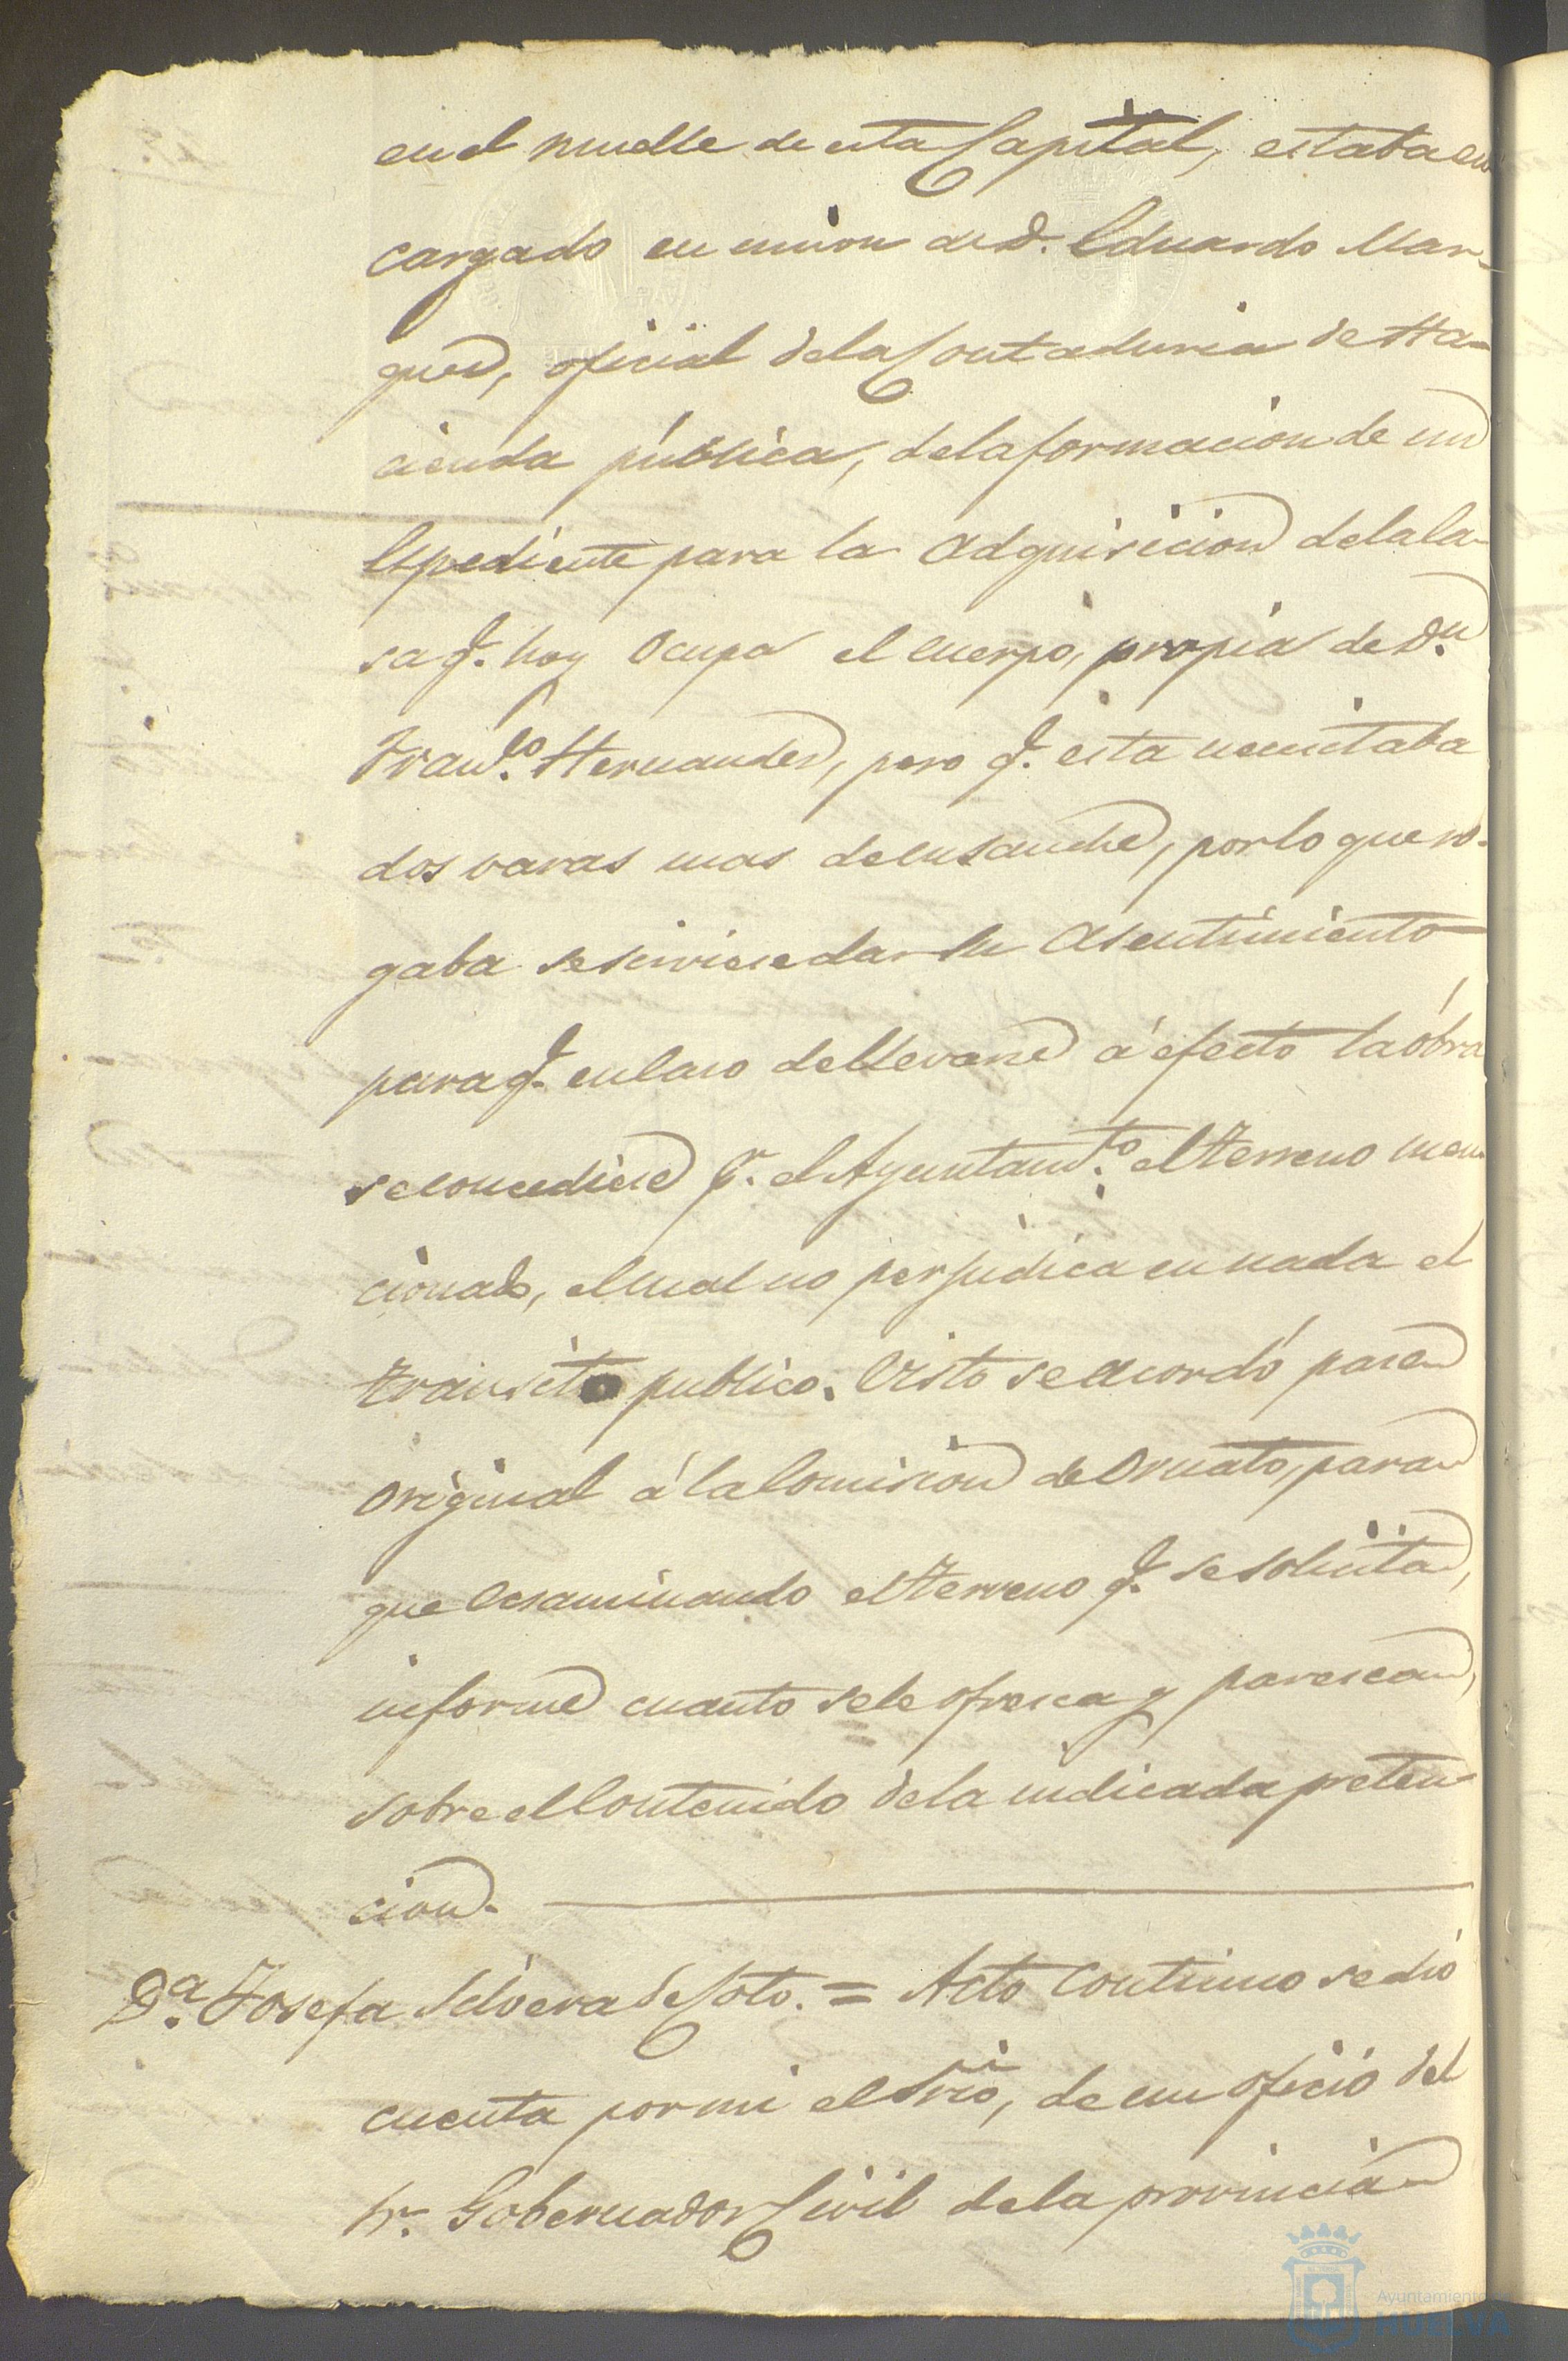 en el muelle de esta Capital, estaba en
cargado en union de D. Eduardo Mar-
quez, oficial dela Contaduria de Ha-
cienda pública, dela formacion de un
Espediente para la adquisicion dela Ca-
sa q. hoy Ocupa el cuerpo, propia de Dn.
Franco. Hernandez, pero q. esta necesitaba
dos varas mas de ensanche, por lo que ro-
gaba se sirviese dar su asentimiento
para q. en caso de llevarse á efecto la óbra
se concediese pr. el Ayuntamto. el terreno men
cionado, el cual no perjudica en nada el
transito publico. Visto se acordó pase
original á la Comision de Ornato, para
que ecsaminando el terreno q. se solicita,
informe cuanto se le ofresca y paresca,
sobre el Contenido dela indicada preten
cion.
Da. Josefa Silvera de Soto. = Acto Continuo se dió
cuenta por mi el Srio, de un oficio del
Sr. Gobernador Civil dela provincia
Ayuntamiento de
HUELVA